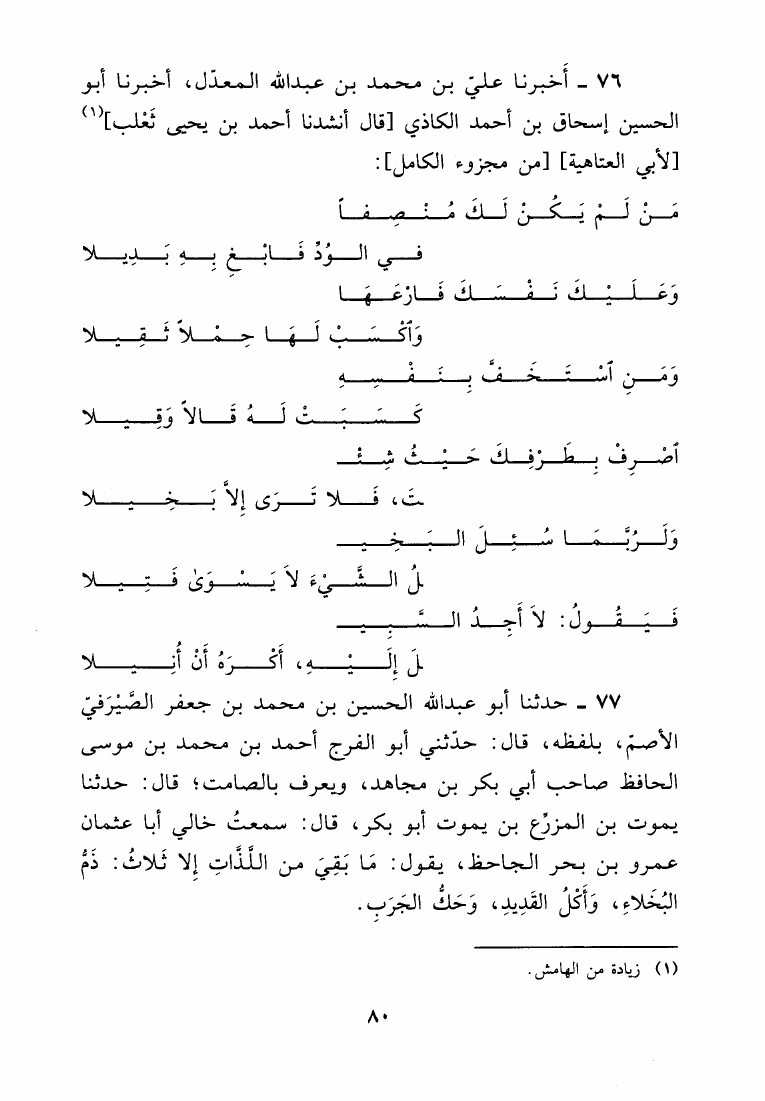 ٧٦ ـ أخبرنا عليّ بن محمد بن عبدالله المعدّل، أخبرنا أبو
الحسين إسحاق بن أحمد الكاذي [قال أنشدنا أحمد بن يحيى ثَعْلب](١)
[لأبي العتاهية] [من مجزوء الكامل]:
مَنْ لَمْ يَكُنْ لَكَ مُنْصِفاً
في الوُدِّ فَابْغِ بِهِ بَدِيلا
وَعَلَيْكَ نَفْسَكَ فَارْعَهَا
وَٱكْسَبْ لَهَا حِمْلاً ثَقِيلا
وَمَنِ ٱسْتَخَفَّ بِنَفْسِهِ
كَسَبَتْ لَهُ قَالاً وَقِيلا
ٱصْرِفْ بِطَرْفِكَ حَيْثُ شِئْـ
ـتَ، فَلا تَرَى إلاَّ بَخِيلا
وَلَرُبَّمَا سُئِلَ البَخِيـ
ـلُ الشَّيْءَ لاَ يَسْوَىٰ فَتِيلا
فَيَقُولُ: لاَ أَجِدُ السَّبِيـ
ـلَ إلَيْهِ، أَكْرَهُ أَنْ أُنِيلا
٧٧ ـ حدثنا أبو عبدالله الحسين بن محمد بن جعفر الصَّيْرَفيّ
الأصمّ، بلفظه، قال: حدّثني أبو الفرج أحمد بن محمد بن موسى
الحافظ صاحب أبي بكر بن مجاهد، ويعرف بالصامت؛ قال: حدثنا
يموت بن المزرِّع بن يموت أبو بكر، قال: سمعتُ خالي أبا عثمان
عمرو بن بحر الجاحظ، يقول: مَا بَقِيَ من اللَّذَّاتِ إلا ثَلاثُ: ذَمُّ
البُخَلاءِ، وَأَكْلُ القَدِيدِ، وَحَكُّ الجَرَبِ.
(١) زيادة من الهامش.
٨٠